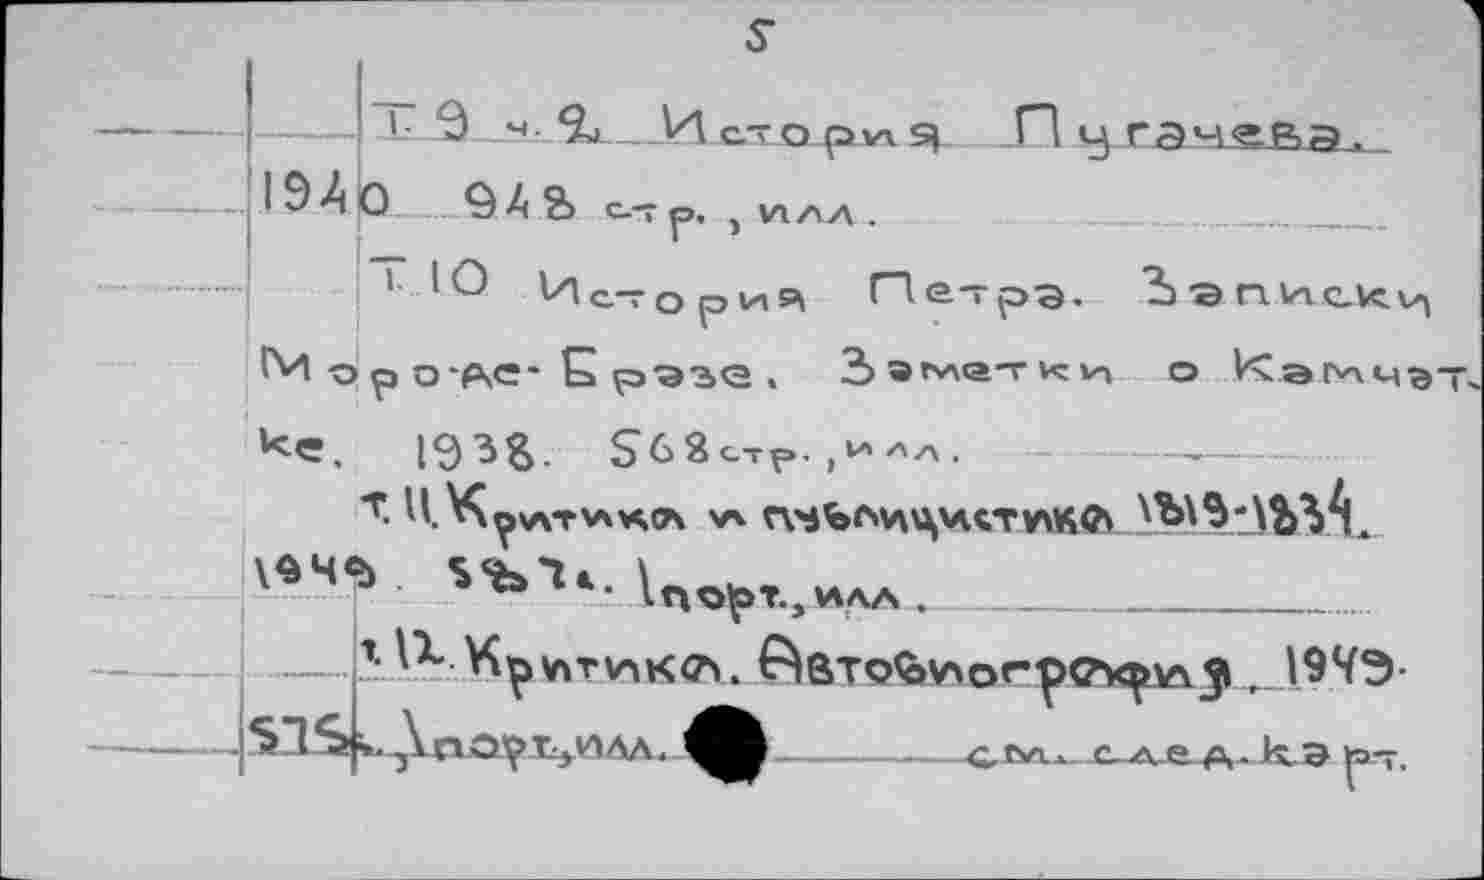 5
Т. 9 ч. 2, История Пугачева.
1940 942 стр., илл.
Т. 10 История Петра. Записки
Моро-де-Бразе. Заметки о Камчат-
ке. 1938. 568 стр., илл.
т. 11. Критика и публицистика 1819-1834.
1949. 1 порт., илл.
т. 12. Критика. Автобиография, 1949.
575с., 1 порт., илл. см. след. карт.